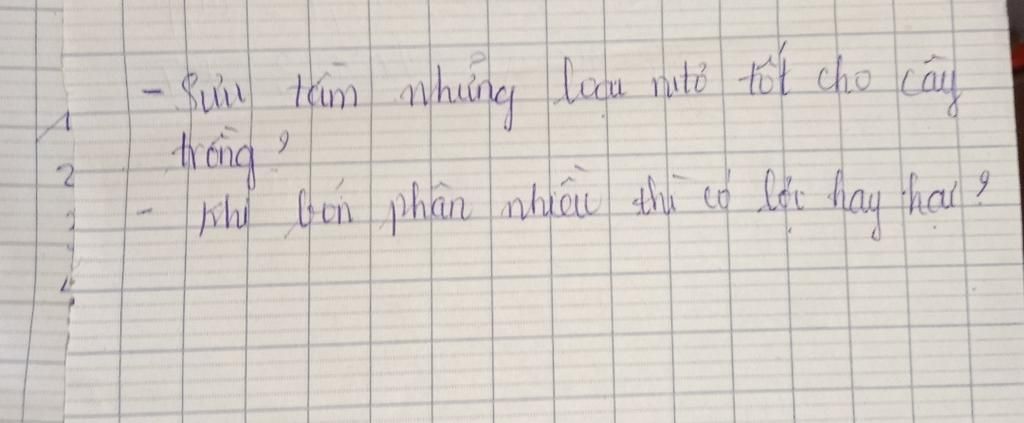 - Sưu tầm những loại nitơ tốt cho cây
1
trồng?
2
- Khi bón phân nhiều thì có lợi hay hại?
3
4